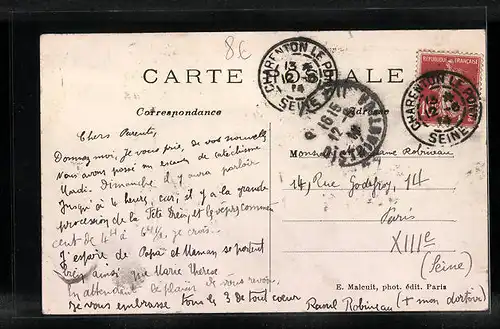 8€
CARTE POSTALE
Correspondance
CHARENTON LE PONT
13
SEINE
RÉPUBLIQUE FRANÇAISE
CHARENTON LE PONT
SEINE
DISTRIBUTION
Chers Parents,
Donnez moi, Je vous prie, de vos nouvelles
Nous avons passé un examen de catéchisme
Mardi. Dimanche il y aura parloir
Jusqu'à 4 heures, car, il y a la grande
procession de la Fête Dieu, et les vêpres commen
cent de 4H à 6H, je crois.
J'espère de Papa et Maman se portent
bien, ainsi que Marie Thérèse
En attendant le plaisir de vous revoir,
Je vous embrasse tous les 3 de tout coeur
Raoul Robineau (+ mon dortoir)
Monsieur Robineau
14, Rue Godefroy, 14
Paris
XIIIe
(Seine)
E. Malcuit, phot. édit. Paris